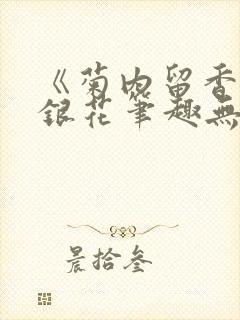 《菊内留香
銀花筆趣無
晨拾叁